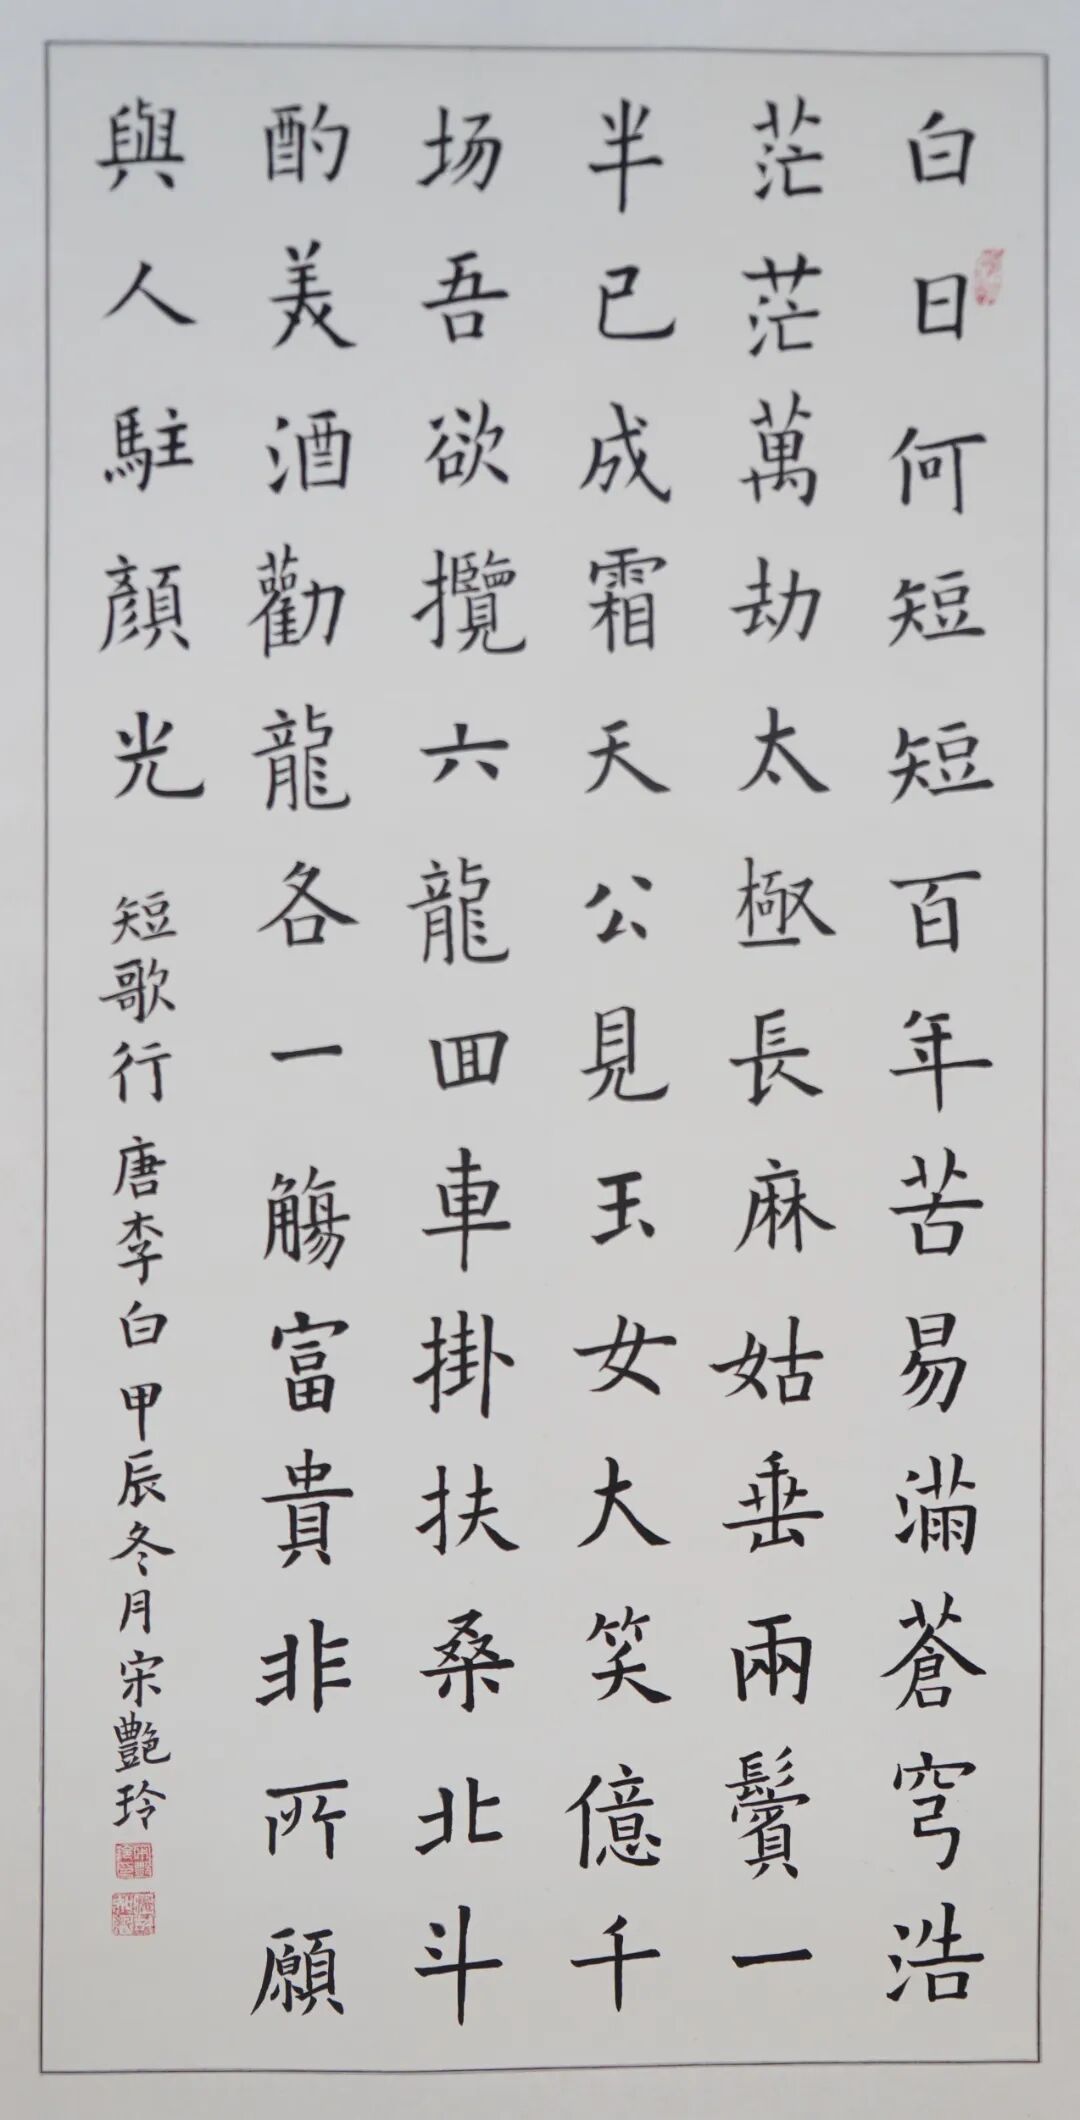 白日何短短百年苦易滿蒼穹浩
茫茫萬劫太極長麻姑垂兩鬢一
半已成霜天公見玉女大笑億千
场吾欲攬六龍回車掛扶桑北斗
酌美酒勸龍各一觴富貴非所願
與人駐顏光
短歌行 唐李白 甲辰冬月宋艷玲